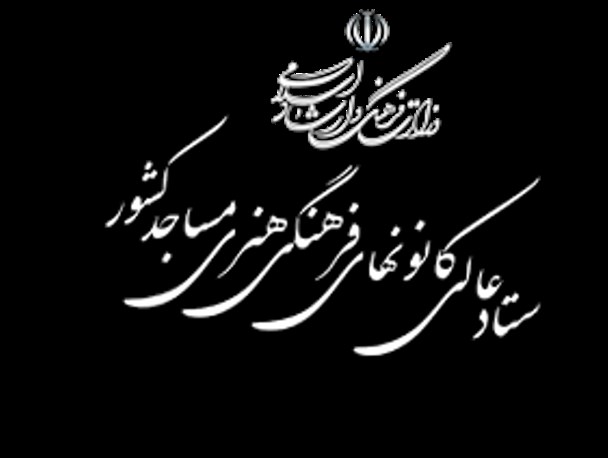 وزارت فرهنگ و ارشاد اسلامی
ستاد عالی کانونهای فرهنگی هنری مساجد کشور